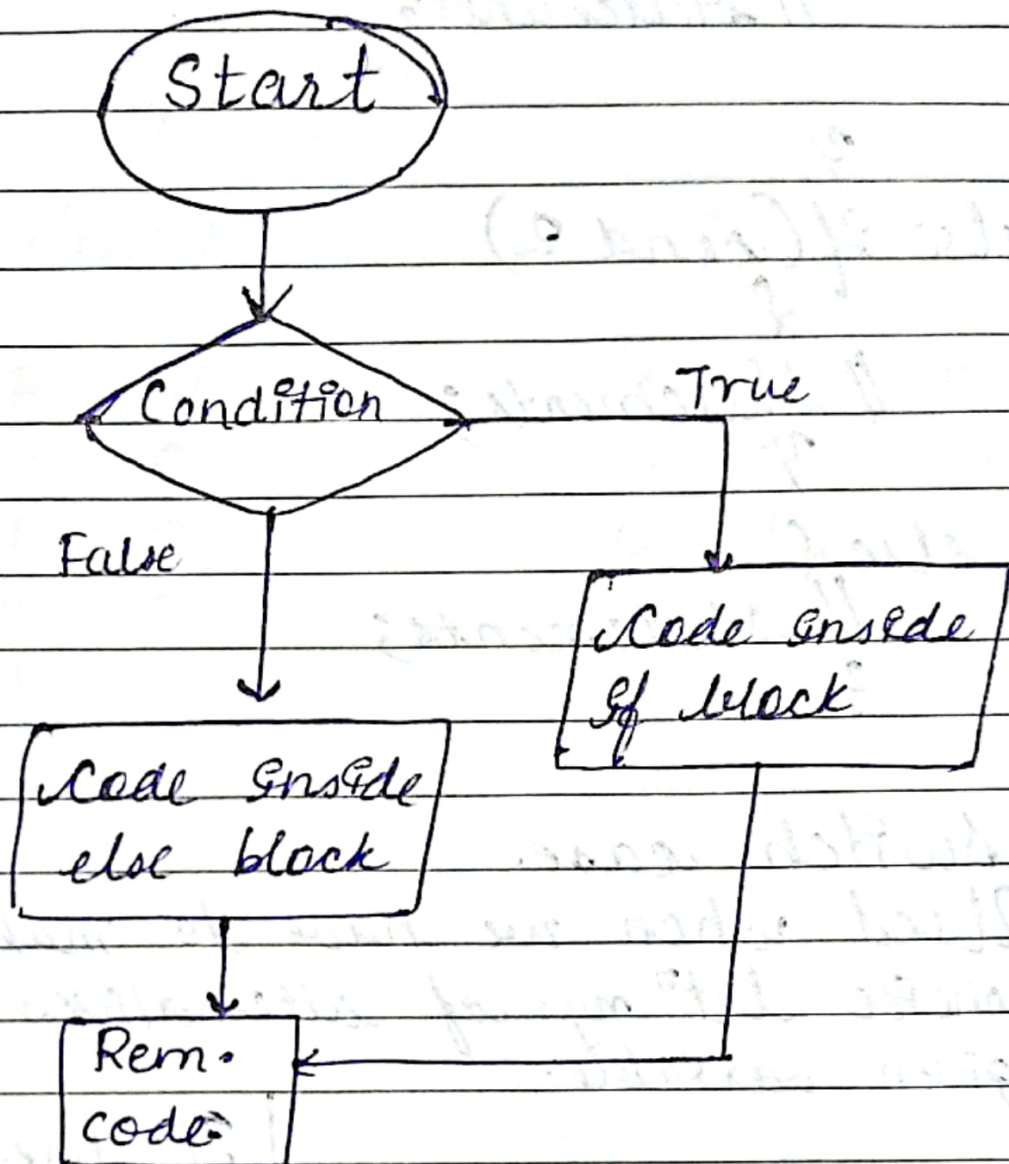 Start
Condition
True
False
Code inside
if block
Code inside
else block
Rem.
code